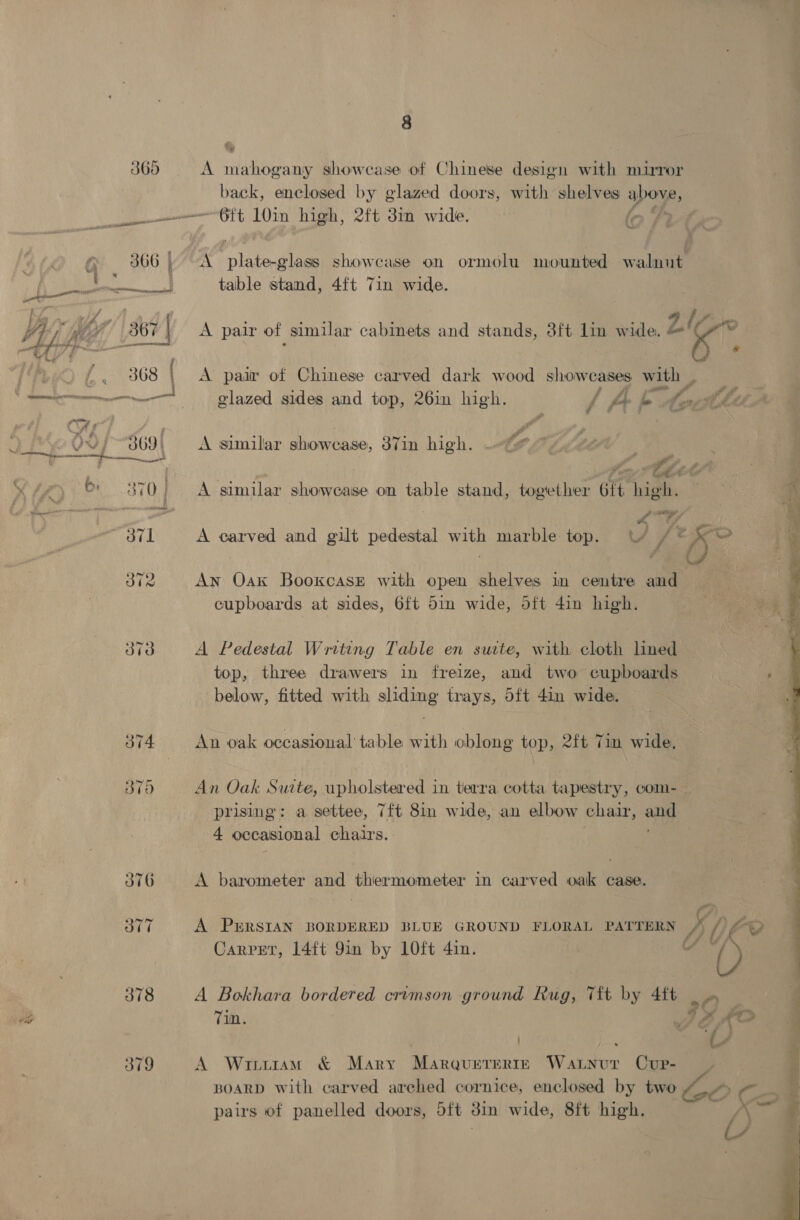 8
365 A mahogany showcase of Chinese design with mirror
back, enclosed by glazed doors, with shelves above,
6ft 10in high, 2ft 3in wide.
366 A plate-glass showcase on ormolu mounted walnut
table stand, 4ft 7in wide.
367 A pair of similar cabinets and stands, 3ft 1in wide.
368 A pair of Chinese carved dark wood showcases with
glazed sides and top, 26in high.
369 A similar showcase, 37in high.
370 A similar showcase on table stand, together 6ft high.
371 A carved and gilt pedestal with marble top.
372 AN OAK BOOKCASE with open shelves in centre and
cupboards at sides, 6ft 5in wide, 5ft 4in high.
373 A Pedestal Writing Table en suite, with cloth lined
top, three drawers in freize, and two cupboards
below, fitted with sliding trays, 5ft 4in wide.
374 An oak occasional table with oblong top, 2ft 7in wide.
375 An Oak Suite, upholstered in terra cotta tapestry, com-
prising: a settee, 7ft 8in wide, an elbow chair, and
4 occasional chairs.
376 A barometer and thermometer in carved oak case.
377 A PERSIAN BORDERED BLUE GROUND FLORAL PATTERN
CARPET, 14ft 9in by 10ft 4in.
378 A Bokhara bordered crimson ground Rug, 7ft by 4ft
7in.
379 A WILLIAM & MARY MARQUETERIE WALNUT CUP-
BOARD with carved arched cornice, enclosed by two
pairs of panelled doors, 5ft 3in wide, 8ft high.